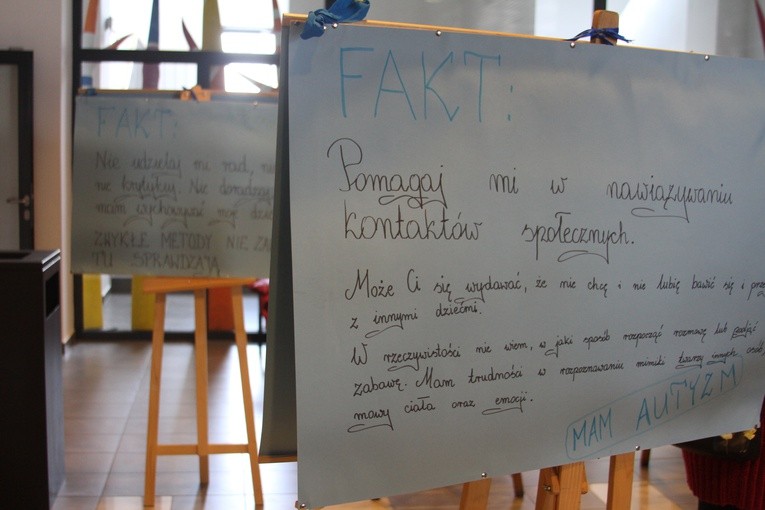 FAKT:
Pomagaj mi w nawiązywaniu
kontaktów społecznych.
Może Ci się wydawać, że nie chcę i nie lubię bawić się i
z innymi dziećmi.
W rzeczywistości nie wiem, w jaki sposób rozpocząć rozmowę lub podjąć
zabawę. Mam trudności w rozpoznawaniu mimiki twarzy innych osób,
mowy ciała oraz emocji.
MAM AUTYZM
FAKT:
Nie udzielaj mi rad,
nie krytykuj. Nie doradzaj
mam wychowywać moje
ZWYKŁE METODY NIE
TU SPRAWDZAJĄ